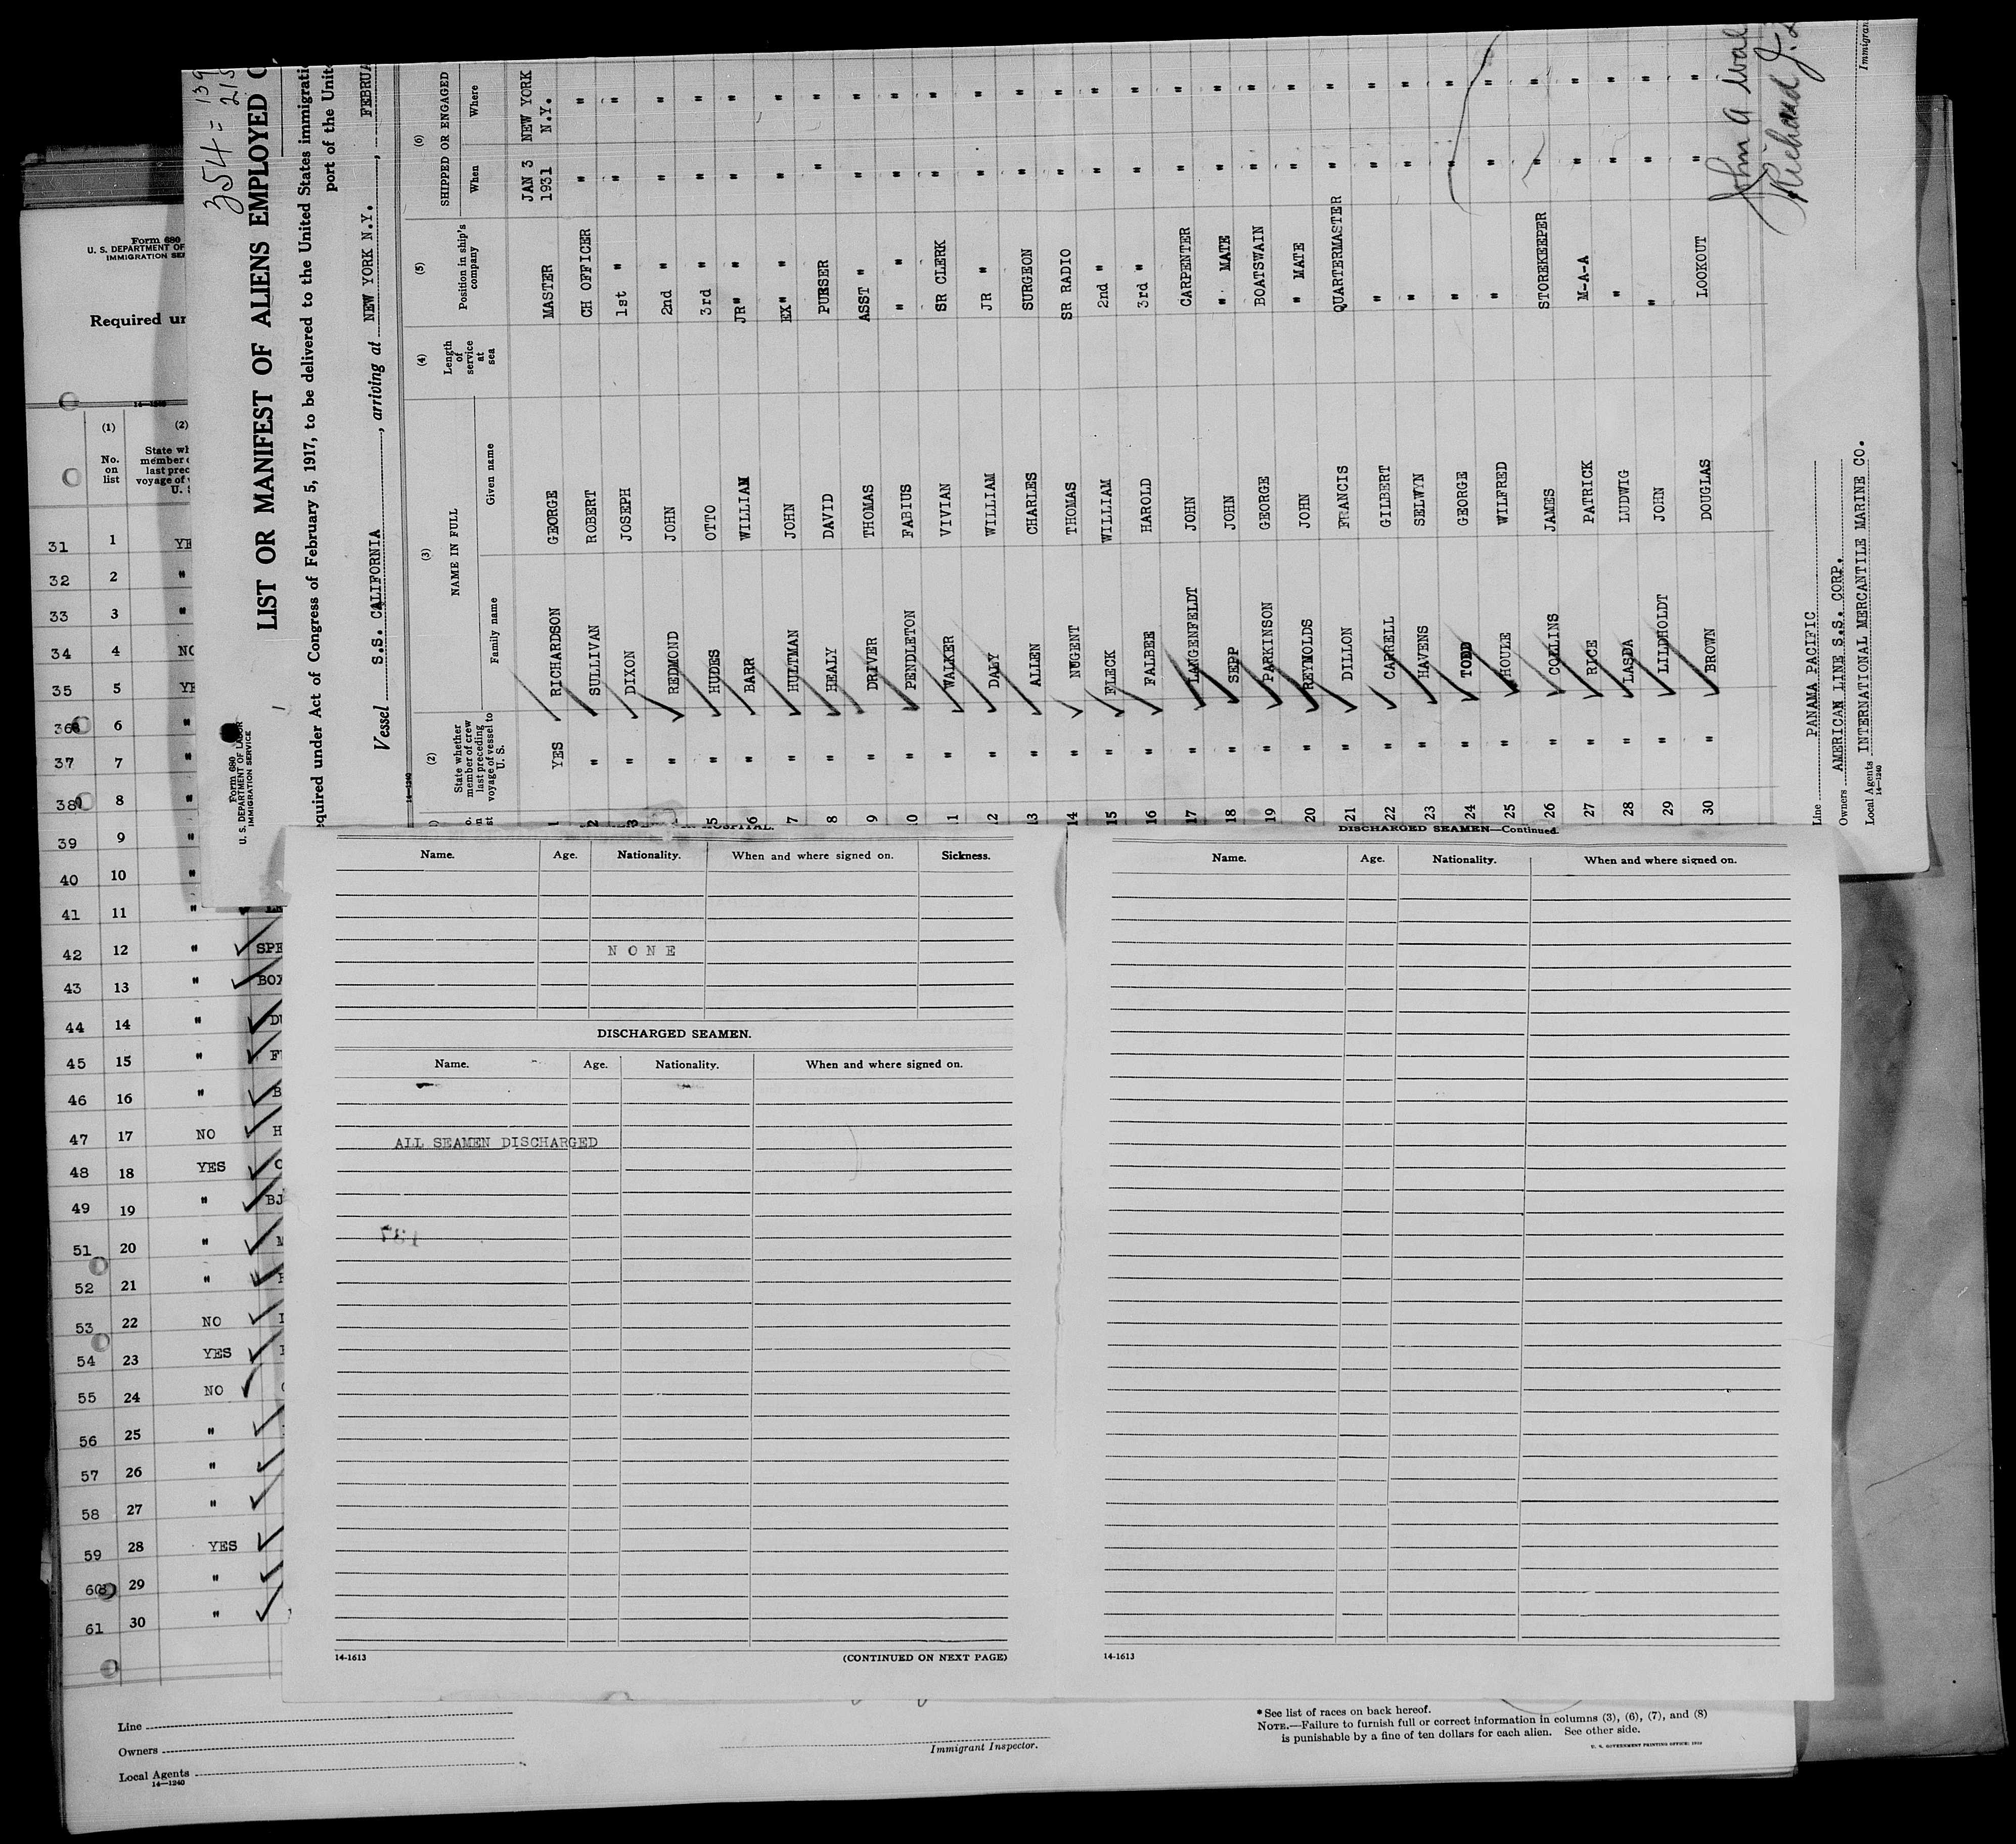 354 = 139
215
LIST OR MANIFEST OF ALIENS EMPLOYED
equired under Act of Congress of February 5, 1917, to be delivered to the United States immigrati
port of the Unit
Vessel S.S. CALIFORNIA , arriving at NEW YORK N.Y. , FEBRUA
Form 680
U. S. DEPARTMENT OF LABOR
IMMIGRATION SERVICE
14-1240
(2) State whether member of crew last preceding voyage of vessel to U. S.
(3) NAME IN FULL
Family name Given name
(4) Length of service at sea
(5) Position in ship's company
(6) SHIPPED OR ENGAGED
When Where
1 YES RICHARDSON GEORGE MASTER JAN 3 1931 NEW YORK N.Y.
2 " SULLIVAN ROBERT CH OFFICER " "
3 " DIXON JOSEPH 1st " " "
4 " REDMOND JOHN 2nd " " "
5 " HUDES OTTO 3rd " " "
6 " BARR WILLIAM JR" " " "
7 " HULTMAN JOHN EX" " " "
8 " HEALY DAVID PURSER " "
9 " DRIVER THOMAS ASST " " "
10 " PENDLETON FABIUS " " " "
11 " WALKER VIVIAN SR CLERK " "
12 " DALY WILLIAM JR " " "
13 " ALLEN CHARLES SURGEON " "
14 " NUGENT THOMAS SR RADIO " "
15 " FLECK WILLIAM 2nd " " "
16 " FALBEE HAROLD 3rd " " "
17 " LANGENFELDT JOHN CARPENTER " "
18 " SEPP JOHN " MATE " "
19 " PARKINSON GEORGE BOATSWAIN " "
20 " REYNOLDS JOHN " MATE " "
21 " DILLON FRANCIS QUARTERMASTER " "
22 " CARRELL GILBERT " " "
23 " HAVENS SELWYN " " "
24 " TODD GEORGE " " "
25 " HOULE WILFRED " " "
26 " COLLINS JAMES STOREKEEPER " "
27 " RICE PATRICK M-A-A " "
28 " LASDA LUDWIG " " "
29 " LILDHOLDT JOHN " " "
30 " BROWN DOUGLAS LOOKOUT " "
John A
Richard J.
Immigran
Line PANAMA PACIFIC
Owners AMERICAN LINE S.S. CORP.
Local Agents INTERNATIONAL MERCANTILE MARINE CO.
14-1240
Form 680
U. S. DEPARTMENT OF
IMMIGRATION SER
Required un
14-1240
(1) (2)
No. on list
State wh
member o
last prec
voyage of
U. S
31 1 YE
32 2 "
33 3 "
34 4 NO
35 5 YE
36 6 "
37 7 "
38 8 "
39 9 "
40 10 "
41 11 "
42 12 " SPE
43 13 " BOX
44 14 " DU
45 15 " F
46 16 " B
47 17 NO H
48 18 YES C
49 19 " BJ
51 20 " M
52 21 "
53 22 NO
54 23 YES
55 24 NO
56 25 "
57 26 "
58 27 "
59 28 YES
60 29 "
61 30 "
HOSPITAL.
Name. Age. Nationality. When and where signed on. Sickness.
NONE
DISCHARGED SEAMEN.
Name. Age. Nationality. When and where signed on.
ALL SEAMEN DISCHARGED
14-1613 (CONTINUED ON NEXT PAGE)
DISCHARGED SEAMEN—Continued.
Name. Age. Nationality. When and where signed on.
14-1613
Line
Owners
Local Agents
14-1240
Immigrant Inspector.
*See list of races on back hereof.
NOTE.—Failure to furnish full or correct information in columns (3), (6), (7), and (8)
is punishable by a fine of ten dollars for each alien. See other side.
U. S. GOVERNMENT PRINTING OFFICE: